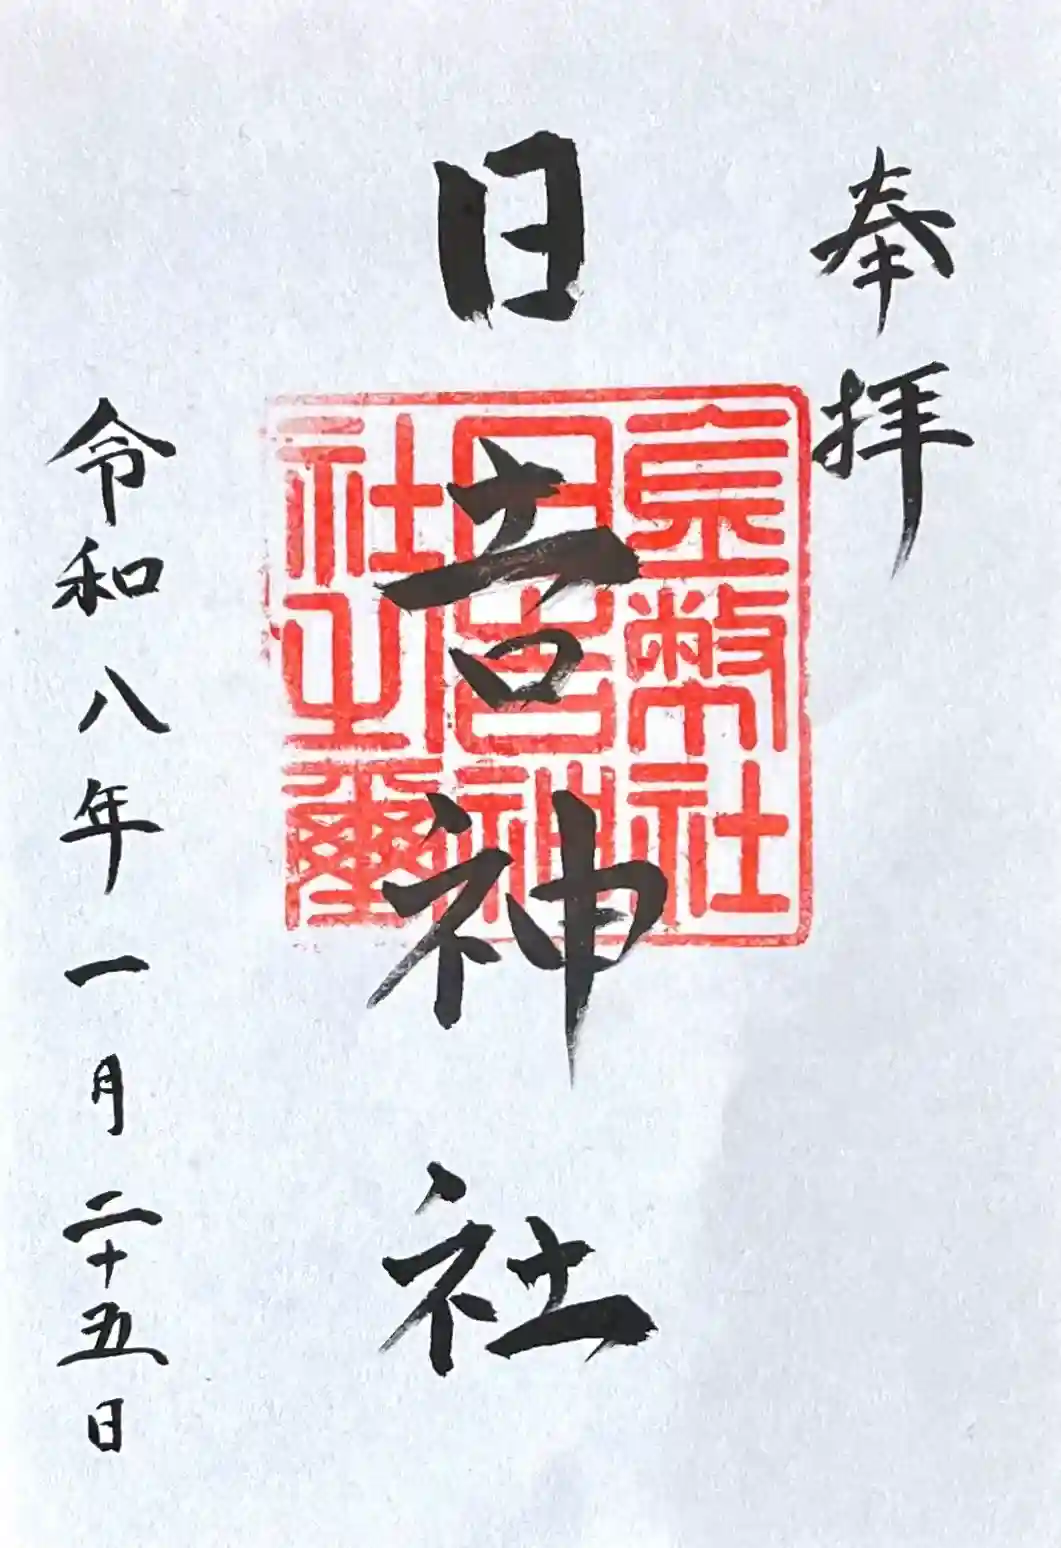 奉拝
日吉神社
金幣社
日吉神
社之璽
令和八年一月二十五日